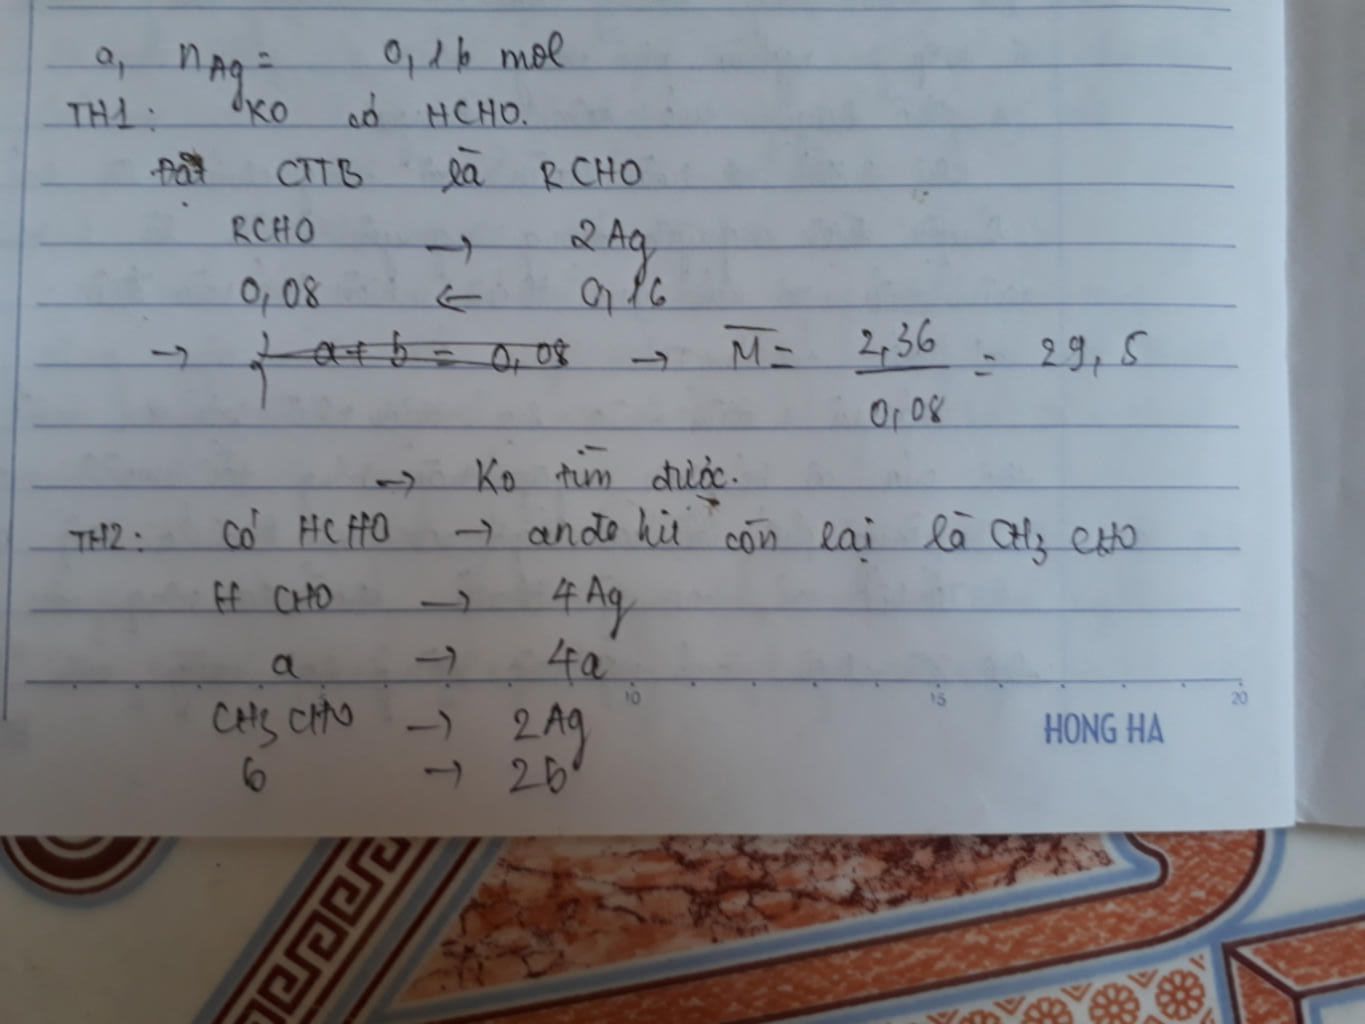 a, nAg = 0,16 mol
TH1: Ko có HCHO.
Đặt CTTB là RCHO
RCHO → 2Ag
0,08 ← 0,16
→ { a + b = 0,08 → M̅ = 2,36 / 0,08 = 29,5
→ Ko tìm được.
TH2: Có HCHO → anđehit còn lại là CH3CHO
HCHO → 4Ag
a → 4a
10 15 20
CH3CHO → 2Ag
HONG HA
b → 2b